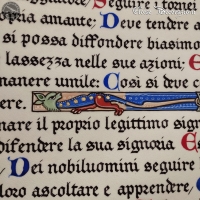 Seguire i tornei
propria amante; Deve tendere
si possa diffondere biasimo
lassezza nelle sue azioni; E
manere umile: Così si deve
ere.
nare il proprio legittimo sign
difendere la sua signoria E
Dei nobiluomini seguire
loro ascoltare e apprendere,